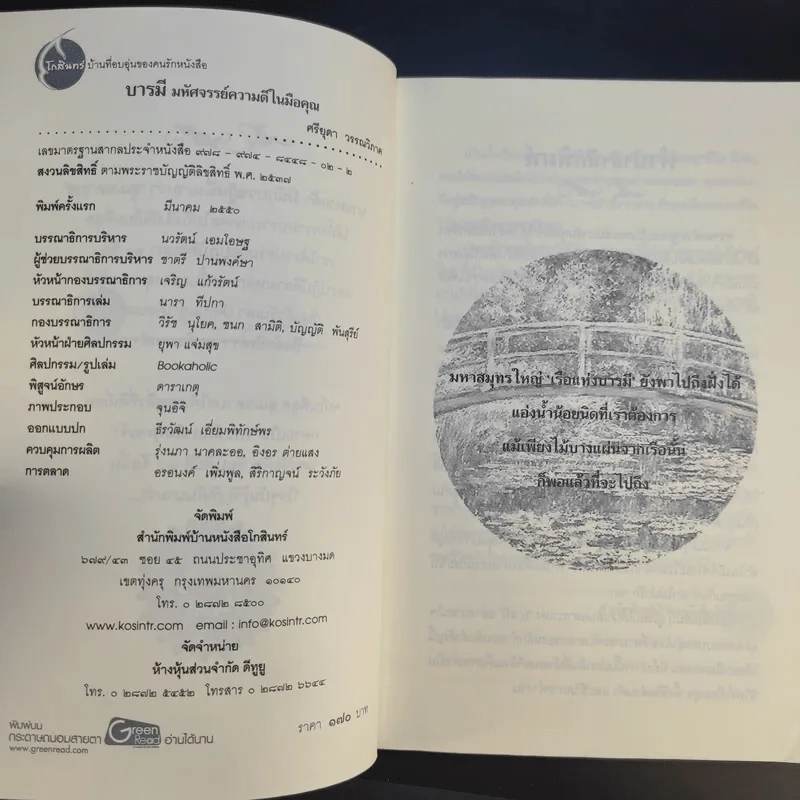 โกสินทร์ บ้านที่อบอุ่นของคนรักหนังสือ
บารมี มหัศจรรย์ความดีในมือคุณ
ศรียุดา วรรณวิภาค
เลขมาตรฐานสากลประจำหนังสือ ๙๗๘ - ๙๗๔ - ๘๔๔๘ - ๐๒ - ๒
สงวนลิขสิทธิ์ ตามพระราชบัญญัติลิขสิทธิ์ พ.ศ. ๒๕๓๗
พิมพ์ครั้งแรก มีนาคม ๒๕๕๐
บรรณาธิการบริหาร นวรัตน์ เอมโอษฐ
ผู้ช่วยบรรณาธิการบริหาร ชาตรี ปานพงศ์ษา
หัวหน้ากองบรรณาธิการ เจริญ แก้วรัตน์
บรรณาธิการเล่ม นารา ทีปกา
กองบรรณาธิการ วิรัช นุโยค, ชนก สามิติ, บัญญัติ พันสุรีย์
หัวหน้าฝ่ายศิลปกรรม ยุพา แจ่มสุข
ศิลปกรรม/รูปเล่ม Bookaholic
พิสูจน์อักษร ดาราเกตุ
ภาพประกอบ จุนอิจิ
ออกแบบปก ธีรวัฒน์ เอี่ยมพิทักษ์พร
ควบคุมการผลิต รุ่งนภา นาคละออ, อิงอร ต่ายแสง
การตลาด อรอนงค์ เพิ่มพูล, สิริกาญจน์ ระวังภัย
จัดพิมพ์
สำนักพิมพ์บ้านหนังสือโกสินทร์
๖๗๙/๔๓ ซอย ๔๕ ถนนประชาอุทิศ แขวงบางมด
เขตทุ่งครุ กรุงเทพมหานคร ๑๐๑๔๐
โทร. ๐ ๒๘๗๒ ๘๕๐๐
www.kosintr.com email : info@kosintr.com
จัดจำหน่าย
ห้างหุ้นส่วนจำกัด ดีทูยู
โทร. ๐ ๒๘๗๒ ๕๔๕๒ โทรสาร ๐ ๒๘๗๒ ๖๖๔๔
ราคา ๑๗๐ บาท
พิมพ์บน
กระดาษถนอมสายตา Green Read อ่านได้นาน
www.greenread.com
มหาสมุทรใหญ่ 'เรือแห่งบารมี' ยังพาไปถึงฝั่งได้
แอ่งน้ำน้อยนิดที่เราต้องการ
แม้เพียงไม้บางแผ่นจากเรือนั้น
ก็พอแล้วที่จะไปถึง